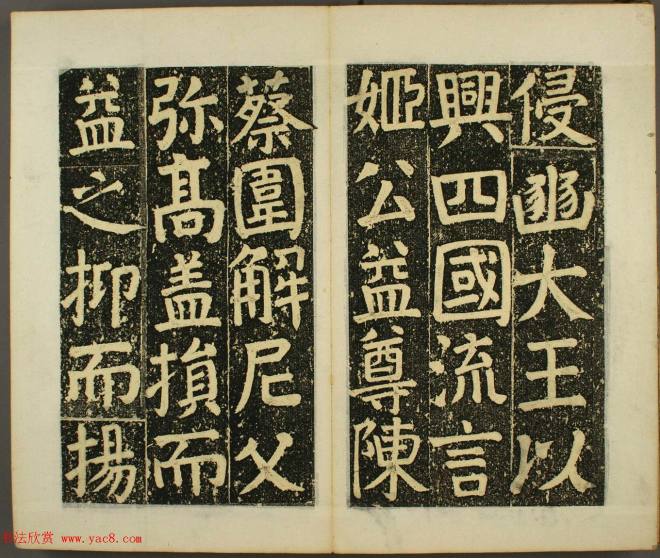 侵豳大王以
興四國流言
姬公益尊陳
蔡圍解尼父
弥髙盖損而
益之抑而揚
书法欣赏 www.yac8.com